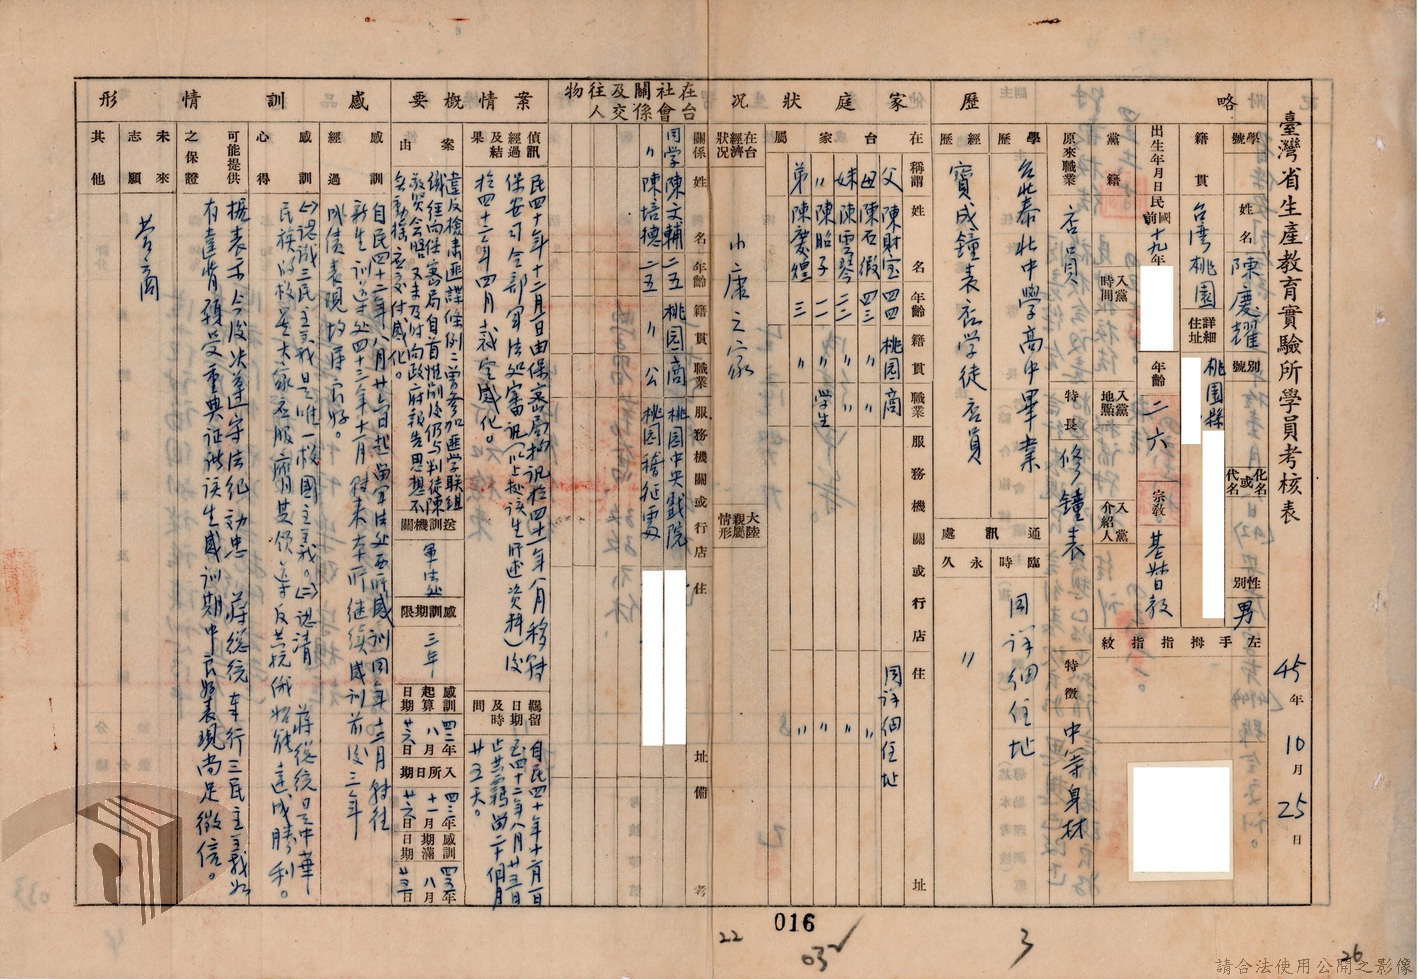 臺灣省生產教育實驗所學員考核表
45年10月25日
略歷
學號
姓名 陳慶耀
別號
化名或代名
性別 男
籍貫 台灣桃園
詳細住址 桃園縣
左手拇指指紋
出生年月日 民國前 十九年
年齡 二六
宗教 基督教
黨籍
入黨時間
入黨地點
入黨介紹人
原來職業 店員
特長 修鐘表
特徵 中等身材
學歷 台北泰北中學高中畢業
經歷 寶成鐘表店學徒店員
通訊處
臨時 同詳細住址
永久 〃
家庭狀況
在台家屬
稱謂 姓名 年齡 籍貫 職業 服務機關或行店 住址
父 陳財宝 四四 桃园 商 同詳細住址
母 陳石緞 四三 〃 〃 〃
妹 陳雪琴 二二 〃 〃 〃
〃 陳昭子 一一 〃 学生 〃
弟 陳慶煌 三 〃 〃
在台經濟狀況 小康之家
大陸親屬情形
在台社會關係及交往人物
關係 姓名 年齡 籍貫 職業 服務機關或行店 住址 備考
同学 陳文輔 二五 桃园 商 桃园中央戲院
〃 陳培德 二五 〃 公 桃园稽征處
案情概要
偵訊經過及結果
民四十年十二月一日由保密局拘訊於四十一年八月移解
保安司令部軍法处審訊(以上按該生所述資料)後
於四十二年四月裁定感化。
羈留日期及時間
自民四十年十二月一日
至四十二年八月廿三日
止共羈留二十個月
廿五天。
案由
違反檢肅匪諜條例二曾參加匪学联組
織經向保密局自首惟嗣後仍与判徒陳
敬賢会晤又未及时向政府報告思想不
無動搖應交付感化。
送訓機關 軍法处
感訓期限 三年
感訓起算日期 四二年八月廿六日
入所日期 四三年十一月廿六日
感訓期滿日期 四五年八月廿三日
感訓情形
感訓經過
自民四十二年八月廿六日起留軍法处看所感訓同年十二月解往
新生訓導处四十三年十一月解来本所继續感訓前後三年
成績表現均屬良好。
感訓心得
(一)認識三民主義是唯一救國主義。(二)認清 蔣総統是中華
民族的救星大家应服膺其領導反共抗俄始能達成勝利。
可能提供之保證
據表示今後决遵守法纪効忠 蔣総統奉行三民主義如
有違背願受重典証諸该生感訓期中良好表現尚足徵信。
未來志願 营商
其他
016
22
032
3
26
請合法使用公開之影像